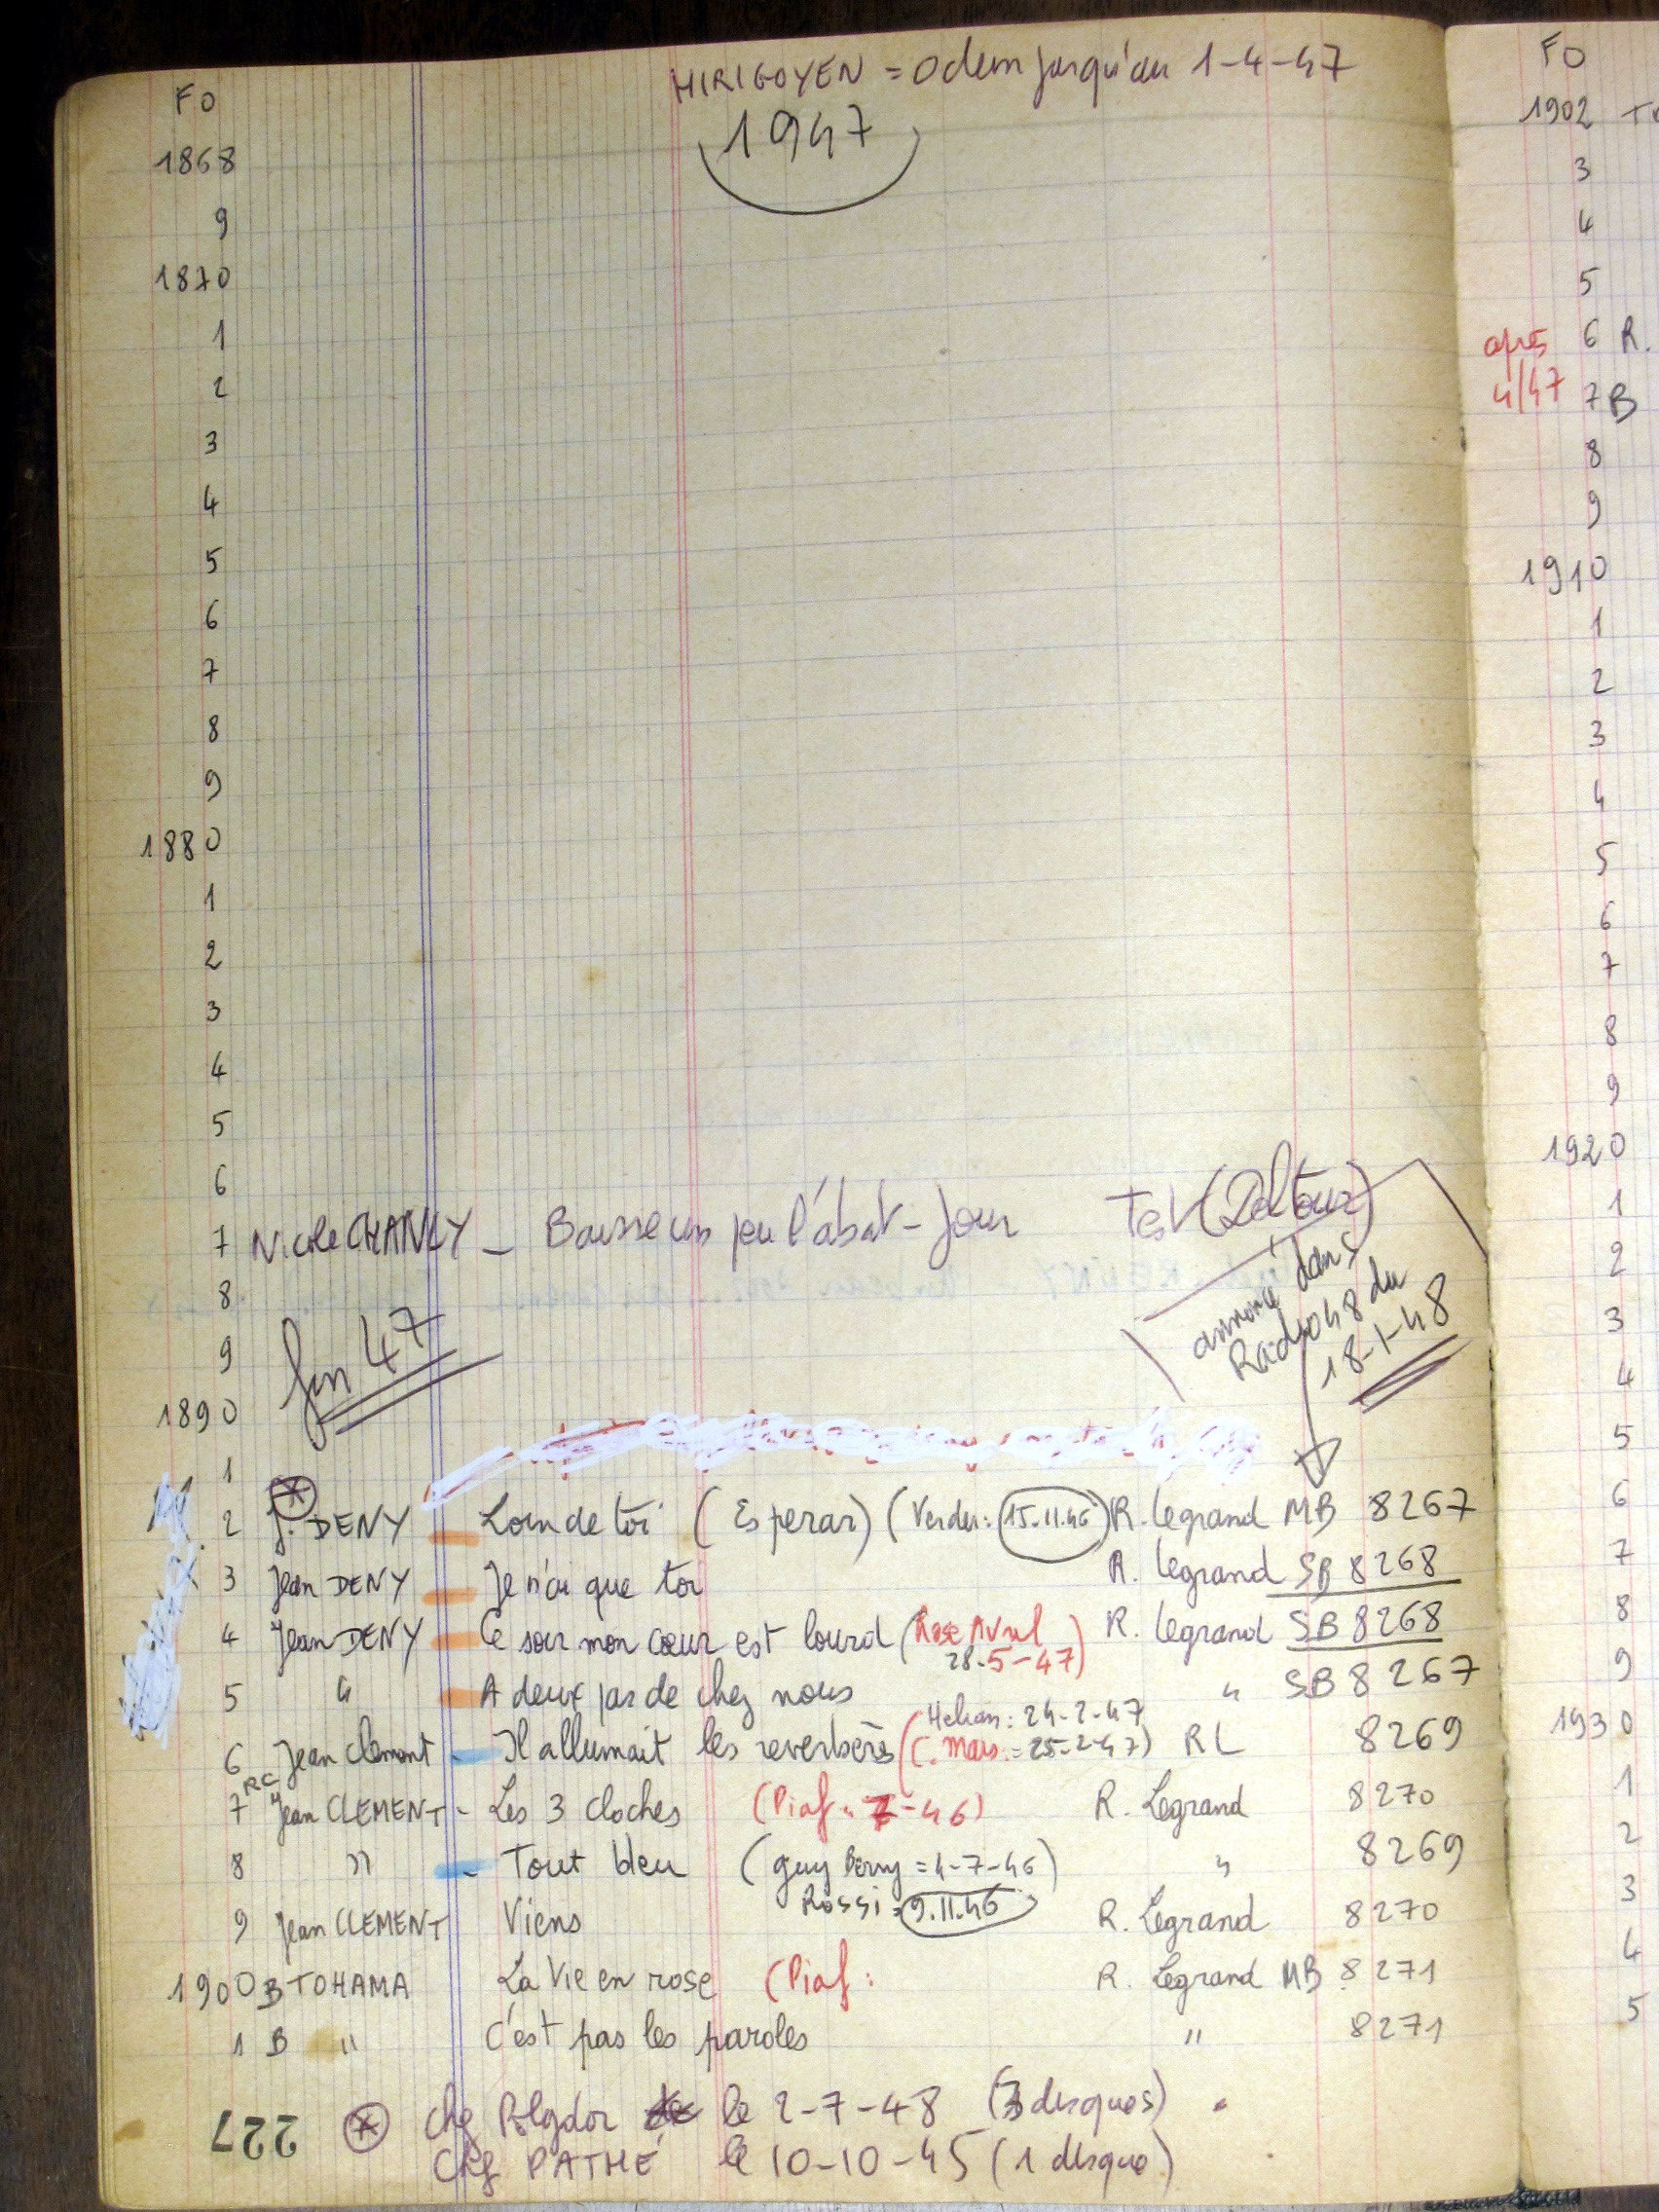 HIRIGOYEN = Odeon jusqu'au 1-4-47
FO
1947
1868
9
1870
1
2
3
4
5
6
7
8
9
1880
1
2
3
4
5
6
7 Nicole CHANCY - Baisse un peu l'abat-jour Test (Deltour)
8
annoncé dans
Radio 48 du
18-1-48
fin 47
9
1890
1
2 J. DENY - Loin de toi (Esperar) (Verdu: 15-11-46) R. Legrand MB 8267
3 Jean DENY - Je n'ai que toi R. Legrand SB 8268
4 Jean DENY - Ce soir mon cœur est lourd (Rose Avril 28-5-47) R. Legrand SB 8268
5 " - A deux pas de chez nous " SB 8267
6 Jean Clement - Il allumait les reverbères (Helian: 24-2-47
C. Mars = 25-2-47) RL 8269
RC
7 Jean CLEMENT - Les 3 cloches (Piaf = 7-46) R. Legrand 8270
8 " - Tout bleu (Guy Berry = 4-7-46) " 8269
Rossi = 9.11.46
9 Jean CLEMENT Viens R. Legrand 8270
1900 B TOHAMA La Vie en rose (Piaf: R. Legrand MB 8271
1 B " C'est pas les paroles " 8271
chez Polydor le 2-7-48 (3 disques)
chez PATHÉ le 10-10-45 (1 disque)
227
FO
1902
3
4
5
après 6 R.
4/47 7 B
8
9
1910
1
2
3
4
5
6
7
8
9
1920
1
2
3
4
5
6
7
8
9
1930
1
2
3
4
5